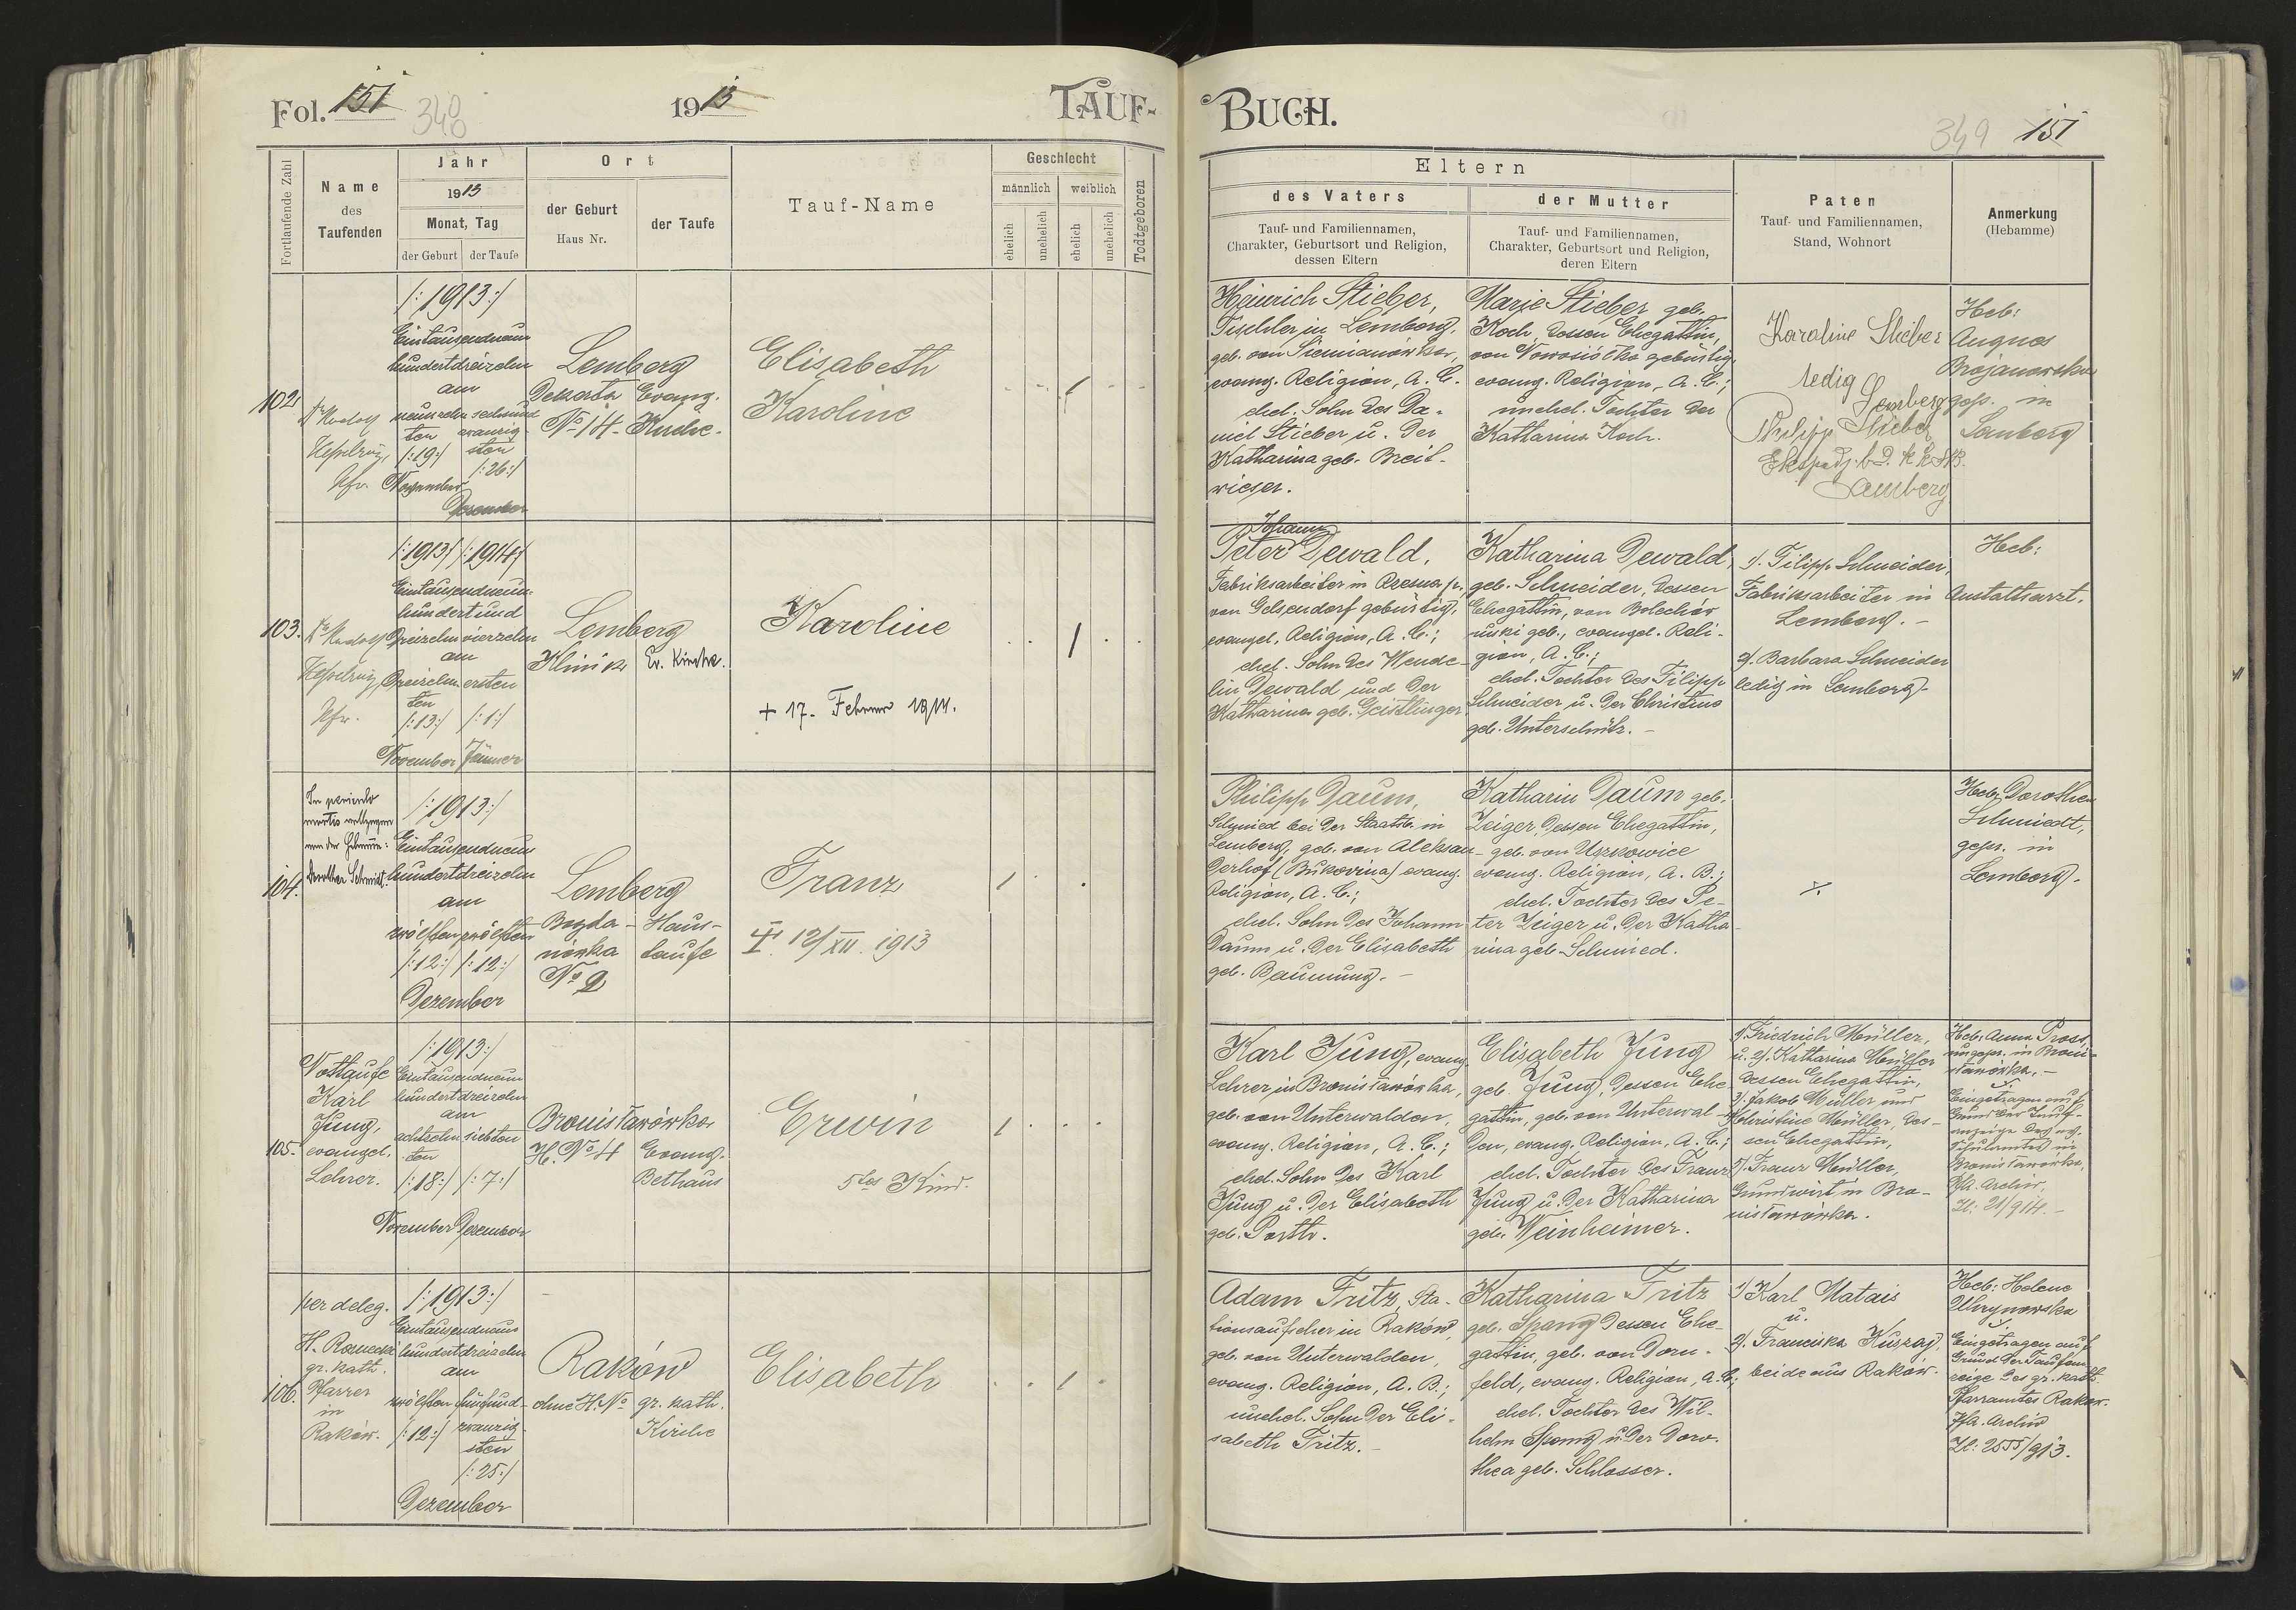 Fol. 151
340
1913
TAUF-
BUCH.
349 151
Fortlaufende Zahl
Name
des
Taufenden
Jahr
1913
Monat, Tag
der Geburt
der Taufe
Ort
der Geburt
Haus Nr.
der Taufe
Tauf-Name
Geschlecht
männlich
weiblich
ehelich
unehelich
ehelich
unehelich
Todtgeboren
Eltern
des Vaters
Tauf- und Familiennamen,
Charakter, Geburtsort und Religion,
dessen Eltern
der Mutter
Tauf- und Familiennamen,
Charakter, Geburtsort und Religion,
deren Eltern
Paten
Tauf- und Familiennamen,
Stand, Wohnort
Anmerkung
(Hebamme)
102.
Dr Rudolf
Kesselring,
Pfr.
/:1913:/
Eintausendneun
hundertdreizehn
am
neunzehn
ten
/:19:/
November
sechsund
zwanzig-
sten
/:26:/
Dezember
Lemberg
No 14
Evang.
Kirche.
Elisabeth
Karoline
Heinrich Stieber,
Tischler in Lemberg,
geb. von Siemianówka,
evang. Religion, A. C.
ehel. Sohn des Da-
niel Stieber u. der
Katharina geb. Breit-
wieser.
Marie Stieber geb.
Koch, dessen Ehegattin,
von Nowosiółka gebürtig,
evang. Religion, A. C.;
unehel. Tochter der
Katharina Koch.
Karoline Stieber
ledig
Lemberg
Philipp Stieber
Lemberg
Heb:
Gepr. in
Lemberg
103.
Dr Rudolf
Kesselring,
Pfr.
/:1913:/ /:1914:/
Eintausendneun-
hundertund
dreizehn vierzehn
am
dreizehn
ten
/:13:/
November
ersten
/:1:/
Jänner
Lemberg
Klinik
Ev. Kirche.
Karoline
+ 17. Februar 1914.
Johann
Peter Dewald,
Fabriksarbeiter in
von Gelsendorf gebürtig,
evangel. Religion, A. C.;
ehel. Sohn des Wende-
lin Dewald und der
Katharina geb. Geistlinger
Katharina Dewald,
geb. Schneider, dessen
Ehegattin, von Bolechów
ruski geb., evangel. Reli-
gion, A. C.;
ehel. Tochter des Filipp
Schneider u. der Christina
geb. Unterschütz. -
1/. Filipp Schneider,
Fabriksarbeiter in
Lemberg. -
2/. Barbara Schneider
ledig in Lemberg.
Heb:
Anstaltsarzt.
104.
In periculo
mortis vollzogen
von der Hebamme:
Dorothea Schmiedt.
/:1913:/
Eintausendneun
hundertdreizehn
am
zwölften zwölften
/:12:/ /:12:/
Dezember
Lemberg
Bogda-
nówka
No 2
Haus-
taufe
Franz
‡ 12/XII. 1913
Philipp Daum,
Schmied bei der Staatsb. in
Lemberg, geb. von Aleksan-
derhof (Bukovina) evang.
Religion, A. C.;
ehel. Sohn des Johann
Daum u. der Elisabeth
geb. Baumung. -
Katharin Daum geb.
Zeiger, dessen Ehegattin,
geb. von Uszkowice
evang. Religion, A. B.;
ehel. Tochter des Pe-
ter Zeiger u. der Katha-
rina geb. Schmied.
Heb. Dorothea
Schmiedt,
gepr. in
Lemberg.
105.
Nottaufe
Karl
Jung,
evangel.
Lehrer.
/:1913:/
Eintausendneun
hundertdreizehn
am
achtzehn
ten
/:18:/
November
siebten
/:7:/
Dezember
Bronisławówka
H. No 4
Evang.
Bethaus
Erwin
5tes Kind.
Karl Jung, evang.
Lehrer in Bronisławówka,
geb. von Unterwalden,
evang. Religion, A. C.;
ehel. Sohn des Karl
Jung u. der Elisabeth
geb. Porth.
Elisabeth Jung
geb. Jung, dessen Ehe-
gattin, geb. von Unterwal-
den, evang. Religion, A. C.;
ehel. Tochter des Franz
Jung u. der Katharina
geb. Weinheimer.
1/. Friedrich Müller,
u. 2/. Katharina Müller
dessen Ehegattin,
3/. Jakob Müller und
4/. Christine Müller, des-
sen Ehegattin,
5/. Franz Müller,
Grundwirt in Bro-
nisławówka.
Heb: Anna Pross,
ungepr. in Broni-
sławówka. -
Eingetragen auf
Grund der Tauf-
anzeige des ev.
Schulamtes in
Bronisławówka,
Pfa. Archiv,
Zl: 21/914. -
106.
per deleg.
H.
gr. kath.
Pfarrer
in
Raków.
/:1913:/
Eintausendneun
hundertdreizehn
am
zwölften
/:12:/
fünfund-
zwanzig-
sten
/:25:/
Dezember
Raków
ohne H. No
gr. kath.
Kirche
Elisabeth
Adam Fritz, Sta-
tionsaufseher in Raków,
geb. von Unterwalden,
evang. Religion, A. B.;
unehel. Sohn der Eli-
sabeth Fritz. -
Katharina Fritz
geb. Spang dessen Ehe-
gattin, geb. von Dorn-
feld, evang. Religion, A. C.;
ehel. Tochter des Wil-
helm Spang u. der Doro-
thea geb. Schlosser.
1/ Karl Matais
u.
2/. Franciska Kuszaj,
beide aus Raków.
Heb: Helene
Uhrynowska
Eingetragen auf
Grund der Taufan-
zeige des gr. kath.
Pfarramtes Raków.
Pfa. Archiv
Zl: 2555/913.